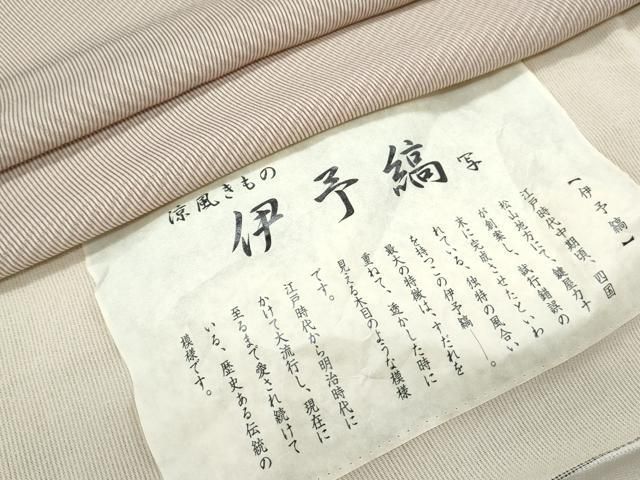 涼風きもの
伊予縞
写
【伊予縞】
江戸時代中期頃、四国
松山地方にて、鍵屋カナ
が創案し、試行錯誤の
末に完成させたといわ
れている、独特の風合い
を持つこの伊予縞――。
最大の特徴は、すだれを
重ねて、透かした時に
見える木目のような模様
です。
江戸時代から明治時代に
かけて大流行し、現在に
至るまで愛され続けて
いる、歴史ある伝統の
模様です。